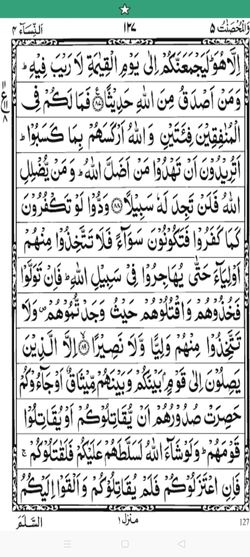 وَالْمُحْصَنٰتُ ٥ ١٢٧ اَلنِّسَآء ٤
اِلَّا هُوَ ؕ لَيَجْمَعَنَّكُمْ اِلٰى يَوْمِ الْقِيٰمَةِ لَا رَيْبَ فِيْهِ ؕ
وَمَنْ اَصْدَقُ مِنَ اللّٰهِ حَدِيْثًا ﴿٨٧﴾ فَمَا لَكُمْ فِى
الْمُنٰفِقِيْنَ فِئَتَيْنِ وَاللّٰهُ اَرْكَسَهُمْ بِمَا كَسَبُوْا ؕ
اَتُرِيْدُوْنَ اَنْ تَهْدُوْا مَنْ اَضَلَّ اللّٰهُ ؕ وَمَنْ يُّضْلِلِ
اللّٰهُ فَلَنْ تَجِدَ لَهٗ سَبِيْلًا ﴿٨٨﴾ وَدُّوْا لَوْ تَكْفُرُوْنَ
كَمَا كَفَرُوْا فَتَكُوْنُوْنَ سَوَآءً فَلَا تَتَّخِذُوْا مِنْهُمْ
اَوْلِيَآءَ حَتّٰى يُهَاجِرُوْا فِىْ سَبِيْلِ اللّٰهِ ؕ فَاِنْ تَوَلَّوْا
فَخُذُوْهُمْ وَاقْتُلُوْهُمْ حَيْثُ وَجَدْتُّمُوْهُمْ ۪ وَلَا
تَتَّخِذُوْا مِنْهُمْ وَلِيًّا وَّلَا نَصِيْرًا ﴿٨٩﴾ اِلَّا الَّذِيْنَ
يَصِلُوْنَ اِلٰى قَوْمٍۭ بَيْنَكُمْ وَبَيْنَهُمْ مِّيْثَاقٌ اَوْ جَآءُوْكُمْ
حَصِرَتْ صُدُوْرُهُمْ اَنْ يُّقَاتِلُوْكُمْ اَوْ يُقَاتِلُوْا
قَوْمَهُمْ ؕ وَلَوْ شَآءَ اللّٰهُ لَسَلَّطَهُمْ عَلَيْكُمْ فَلَقٰتَلُوْكُمْ ۚ
فَاِنِ اعْتَزَلُوْكُمْ فَلَمْ يُقَاتِلُوْكُمْ وَاَلْقَوْا اِلَيْكُمُ
السَّلَمَ منزل ١ 127